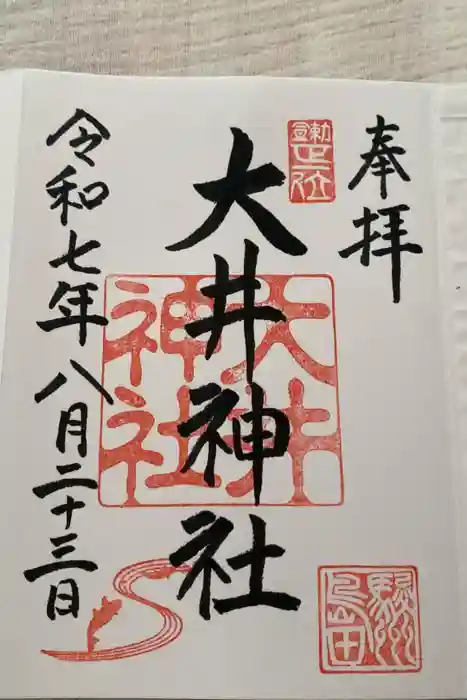 奉拝
勅宣正一位
大井神社
大井神社
駿州島田
令和七年八月二十三日